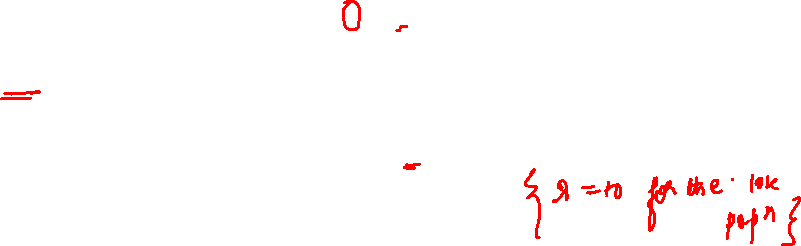 0 -
=
-
{ r = 10 for the 10k
popⁿ }